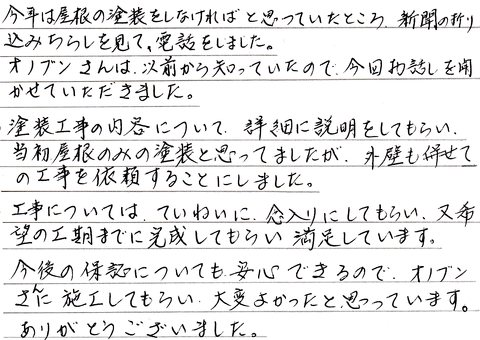 今年は屋根の塗装をしなければと思っていたところ、新聞の折り
込みちらしを見て、電話をしました。
オノブンさんは、以前から知っていたので、今回お話しを聞
かせていただきました。
塗装工事の内容について、詳細に説明をしてもらい、
当初屋根のみの塗装と思ってましたが、外壁も併せて
の工事を依頼することにしました。
工事については、ていねいに、念入りにしてもらい、又希
望の工期までに完成してもらい満足しています。
今後の保証についても安心できるので、オノブン
さんに施工してもらい、大変よかったと思っています。
ありがとうございました。